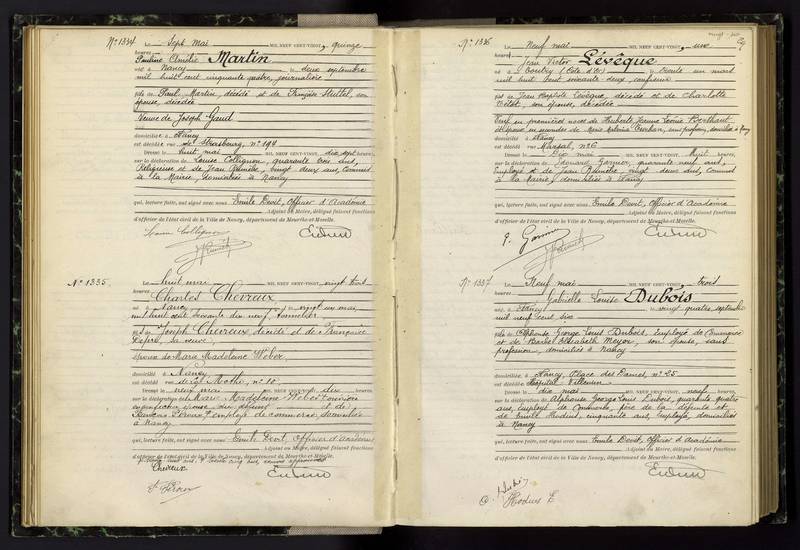 N° 1334
Le Sept Mai MIL NEUF CENT VINGT, quinze
heures
Pauline Amélie Martin
né à Nancy le deux septembre
mil huit cent cinquante quatre, journalière
fils de Paul Martin, décédé et de Françoise son
épouse, décédée
Veuve de Joseph Gaud
domicilié à Nancy
est décédé rue de Strasbourg, n° 194
Dressé le huit mai MIL NEUF CENT VINGT, dix sept heures,
sur la déclaration de Louise Collignon, quarante trois ans,
Religieuse et de Jean vingt deux ans, Commis
à la Mairie, domiciliés à Nancy
qui, lecture faite, ont signé avec nous Emile Devit, Officier d'Académie
Adjoint au Maire, délégué faisant fonctions
d'officier de l'état civil de la Ville de Nancy, département de Meurthe-et-Moselle.
Collignon
N° 1335
Le huit mai MIL NEUF CENT VINGT, vingt trois
heures
Charles Chevreux
né à Nancy le vingt un mai
mil huit cent soixante dix neuf,
fils de Joseph Chevreux décédé et de Françoise
sa veuve,
époux de Marie Madeleine Weber
domicilié à Nancy
est décédé n° 10
Dressé le neuf mai MIL NEUF CENT VINGT, dix heures,
sur la déclaration de Marie Madeleine Weber
épouse du défunt et de
employé de commerce, domiciliés
à Nancy
qui, lecture faite, ont signé avec nous Emile Devit, Officier d'Académie
Adjoint au Maire, délégué faisant fonctions
d'officier de l'état civil de la Ville de Nancy, département de Meurthe-et-Moselle.
Chevreux
N° 1336
Le Neuf mai MIL NEUF CENT VINGT, une
heures
Jean Victor Lévêque
né à (Côte d'Or) le trente un mars
mil huit cent soixante deux confiseur
fils de Jean Baptiste Lévêque décédé et de Charlotte
son épouse, décédée
Veuf en premières noces de Huberte Jeanne Léonie Berthaut
époux en secondes de Marie sans profession, domiciliée à Nancy
domicilié à Nancy
est décédé rue n° 6
Dressé le Dix mai MIL NEUF CENT VINGT, huit heures,
sur la déclaration de Edouard Garnier, quarante neuf ans,
Employé et de Jean vingt deux ans, Commis
à la Mairie, domiciliés à Nancy
qui, lecture faite, ont signé avec nous Emile Devit, Officier d'Académie
Adjoint au Maire, délégué faisant fonctions
d'officier de l'état civil de la Ville de Nancy, département de Meurthe-et-Moselle.
N° 1337
Le Neuf mai MIL NEUF CENT VINGT, trois
heures
Gabrielle Louise Dubois
né à Nancy le vingt quatre septembre
mil neuf cent dix
fille de Alphonse George Louis Dubois, Employé de Commerce
et de Barbe Elisabeth Meyer, son épouse, sans
profession, domiciliés à Nancy
domicilié à Nancy, Place des Dames, n° 25
est décédé Hôpital Villemin
Dressé le dix mai MIL NEUF CENT VINGT, neuf heures,
sur la déclaration de Alphonse George Louis Dubois, quarante quatre
ans, employé de Commerce, père de la défunte et
de Emile Hodius, cinquante ans, Employé, domiciliés
à Nancy
qui, lecture faite, ont signé avec nous Emile Devit, Officier d'Académie
Adjoint au Maire, délégué faisant fonctions
d'officier de l'état civil de la Ville de Nancy, département de Meurthe-et-Moselle.
Hodius E